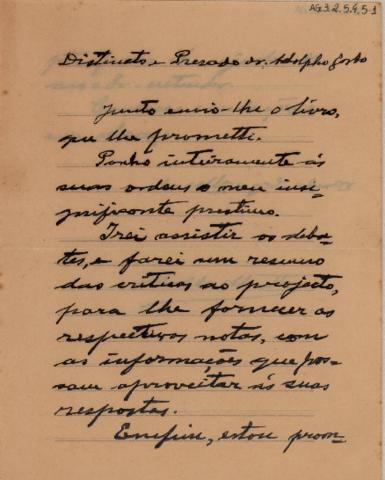 AG3.2.5.4.5-1
Distincto e Presado dr. Adolpho Gordo
Junto envio-lhe o livro,
que lhe prometti.
Ponho inteiramente ás
suas ordens o meu insi-
gnificante prestimo.
Irei assistir os deba-
tes, e farei um resumo
das criticas ao projecto,
para lhe fornecer as
respectivas notas, com
as informações que pos-
sam aproveitar ás suas
respostas.
Emfim, estou prom-